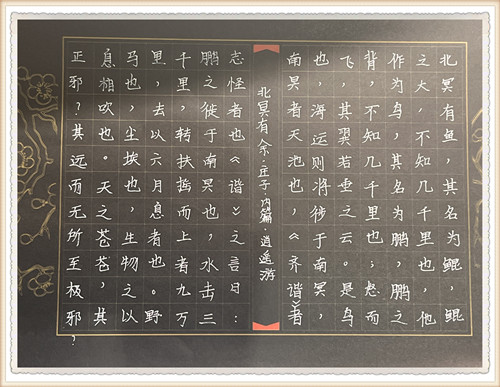 北冥有鱼，其名为鲲，鲲
之大，不知几千里也，他
作为鸟，其名为鹏，鹏之
背，不知几千里也；怒而
飞，其翼若垂之云。是鸟
也，海运则将徙于南冥，
南冥者天池也，《齐谐》者
北冥有余·庄子 内篇·逍遥游
志怪者也《谐》之言曰：
鹏之徙于南冥也，水击三
千里，转扶摇而上者九万
里，去以六月息者也。野
马也，尘埃也，生物之以
息相吹也。天之苍苍，其
正邪？其远而无所至极邪？